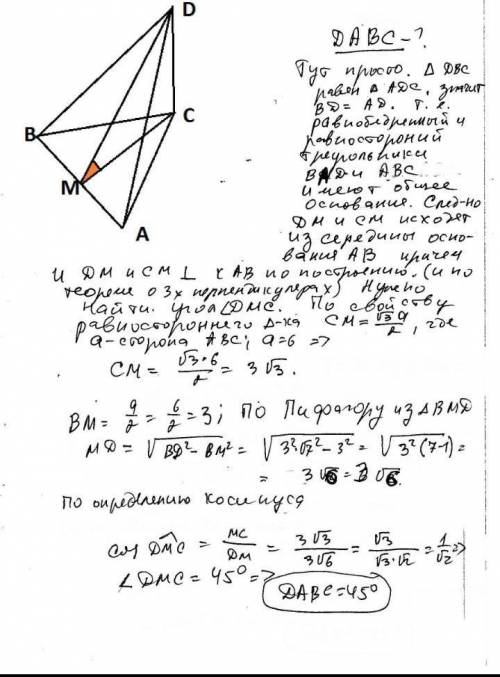 D
C
B
M
A
DABC-?
Тут просто. Δ DBC
равен Δ ADC, значит
BD = AD. т.е.
равнобедренный и
равносторонний
треугольники
BAD и ABC
имеют общее
основание. След-но
DM и CM исходят
из середины осно-
вания AB причем
и DM и CM ⊥ к AB по построению. (и по
теореме о 3х перпендикулерах) Нужно
найти угол DMC. По свойству
равностороннего Δ-ка CM = √3 a / 2, где
a-сторона ABC; a=6 =>
CM = √3·6 / 2 = 3√3.
BM = a/2 = 6/2 = 3; По Пифагору из ΔBMD
MD = √(BD² - BM²) = √(3²·√7² - 3²) = √(3²(7-1)) =
= 3√6 = 3√6.
По определению косинуса
cos DMC = MC/DM = 3√3/3√6 = √3/√3·√2 = 1/√2 =>
∠DMC = 45° =>
DABC = 45°